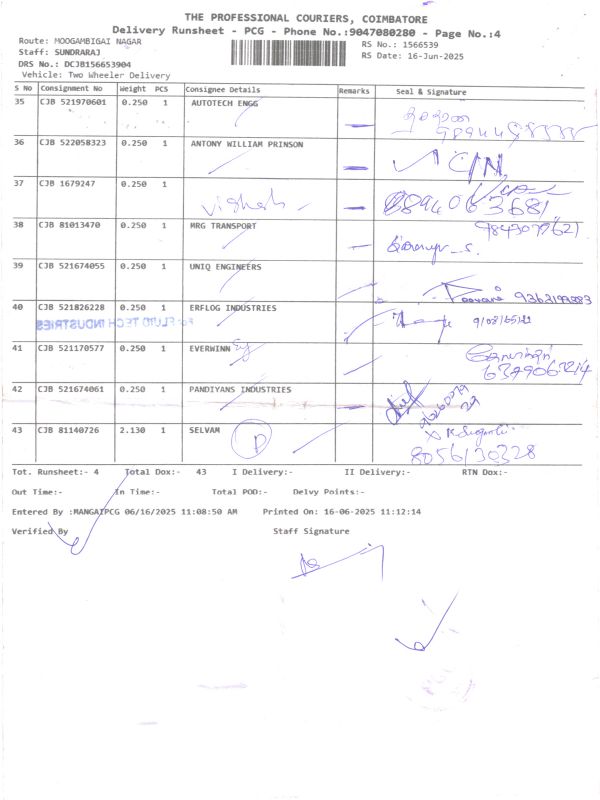 THE PROFESSIONAL COURIERS, COIMBATORE
Delivery Runsheet - PCG - Phone No.:9047080280 - Page No.:4
Route: MOOGAMBIGAI NAGAR
RS No.: 1566539
Staff: SUNDRARAJ
RS Date: 16-Jun-2025
DRS No.: DCJB156653904
Vehicle: Two Wheeler Delivery
S No Consignment No Weight PCS Consignee Details Remarks Seal & Signature
35 CJB 521970601 0.250 1 AUTOTECH ENGG
36 CJB 522058323 0.250 1 ANTONY WILLIAM PRINSON
37 CJB 1679247 0.250 1
Vishal 8940063681
38 CJB 81013470 0.250 1 MRG TRANSPORT 9843077621
39 CJB 521674055 0.250 1 UNIQ ENGINEERS
40 CJB 521826228 0.250 1 ERFLOG INDUSTRIES
For FLUID TECH INDUSTRIES
41 CJB 521170577 0.250 1 EVERWINN
42 CJB 521674061 0.250 1 PANDIYANS INDUSTRIES
43 CJB 81140726 2.130 1 SELVAM
D 8056130328
Tot. Runsheet:- 4 Total Dox:- 43 I Delivery:- II Delivery:- RTN Dox:-
Out Time:- In Time:- Total POD:- Delvy Points:-
Entered By :MANGAIPCG 06/16/2025 11:08:50 AM Printed On: 16-06-2025 11:12:14
Verified By Staff Signature